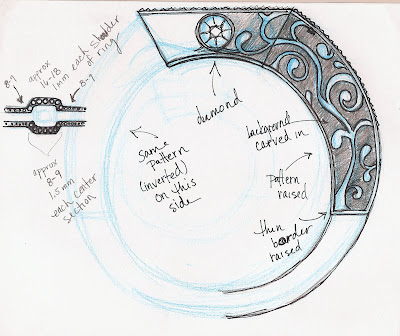 8-9
approx
16-18
1mm each shoulder
of ring
8-9
approx
8-9
1.5mm
each center
section
same
pattern
(inverted)
on this
side
diamond
background
carved in
pattern
raised
thin
border
raised